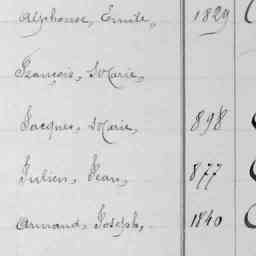 Alphonse, Emile, 1829
François, Marie,
Jacques, Marie, 898
Julien, Jean, 877
Armand, Joseph, 1840